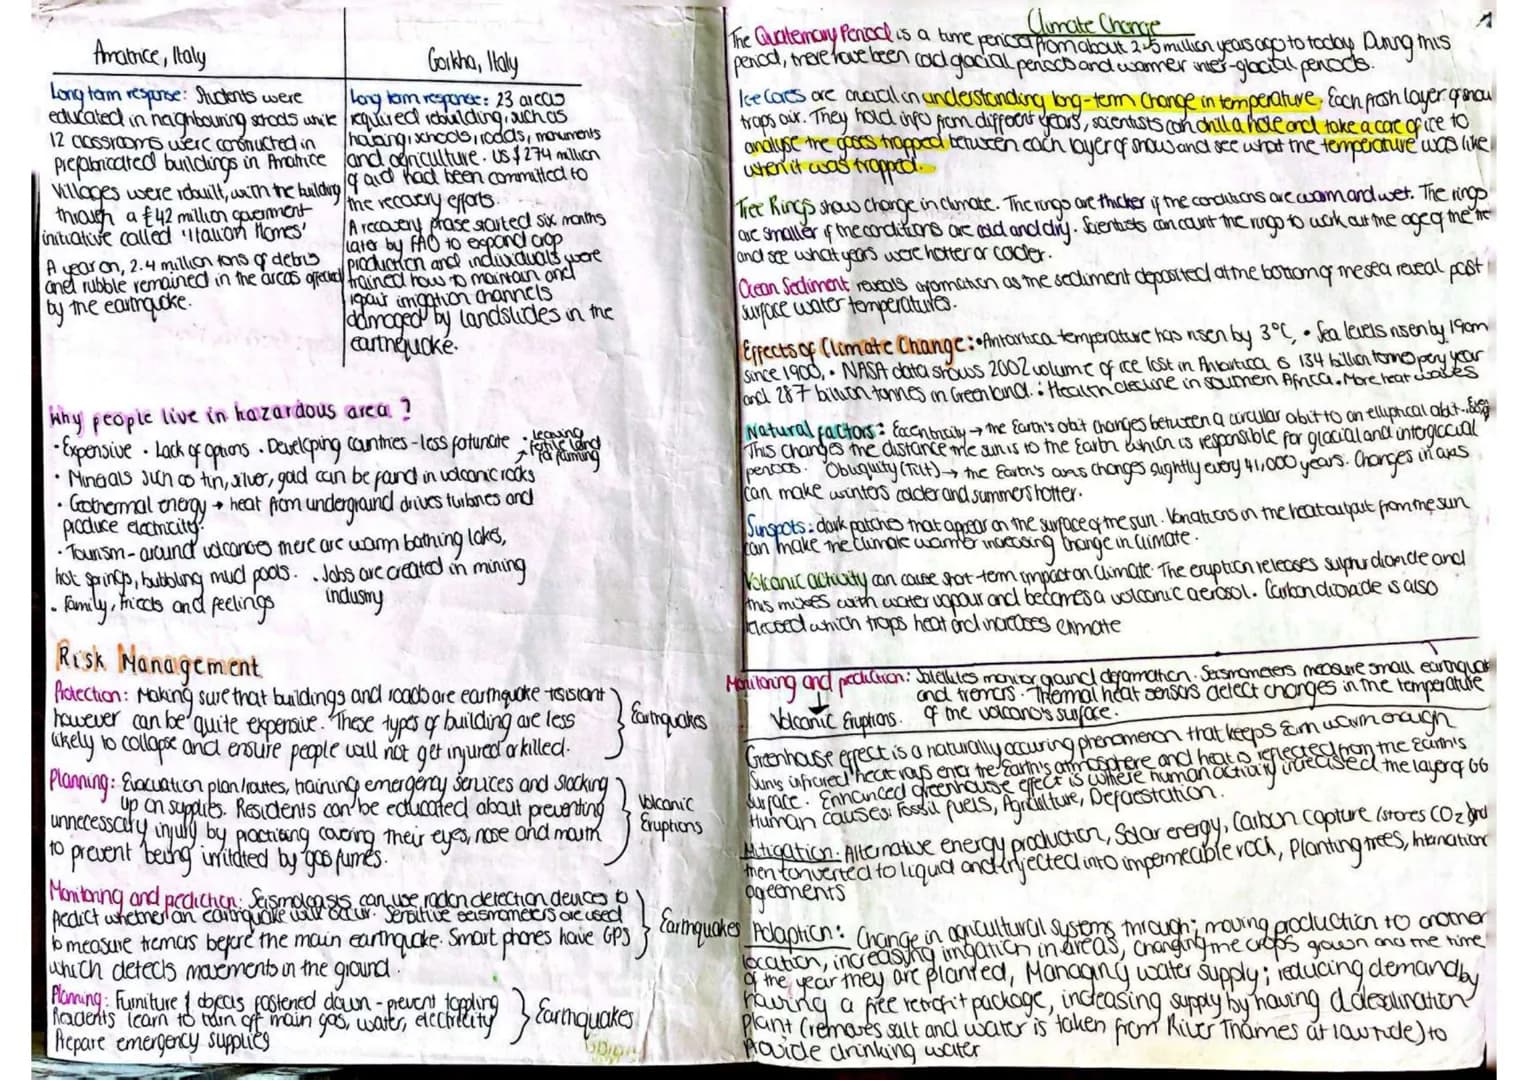 Amatrice, Italy
Long term response: Students were
educated in neighbouring schools while
12 classrooms were constructed in
prefabricated buildings in Amatrice
Villages were rebuilt, with the building
through a £42 million government
initiative called 'Italian Homes'
A year on, 2.4 million tons of debris
and rubble remained in the areas affected
by the earthquake.
Gorkha, Italy
Long term response: 23 areas
required rebuilding, such as
housing, schools, roads, monuments
and agriculture. US $274 million
of aid had been committed to
the recovery efforts.
A recovery phase started six months
later by FAO to expand crop
production and individuals were
trained how to maintain and
repair irrigation channels
damaged by landslides in the
earthquake.
Why people live in hazardous area?
• Expensive • Lack of options • Developing countries - less fortunate • leaving
→ fertile land
for farming
• Minerals such as tin, silver, gold can be found in volcanic rocks
• Geothermal energy → heat from underground drives turbines and
produce electricity.
• Tourism - around volcanoes there are warm bathing lakes,
hot springs, bubbling mud pools. • Jobs are created in mining
industry
• family, friends and feelings
Risk Management
Protection: Making sure that buildings and roads are earthquake-resistant
however can be quite expensive. These types of building are less
likely to collapse and ensure people will not get injured or killed.
Earthquakes
Planning: Evacuation plan/routes, training emergency services and stocking
up on supplies. Residents can be educated about preventing
unnecessary injury by practising covering their eyes, nose and mouth
to prevent being irritated by gas fumes.
Volcanic
Eruptions
Monitoring and prediction: Seismologists can use radon detection devices to
predict whether an earthquake will occur. Sensitive seismometers are used
to measure tremors before the main earthquake. Smart phones have GPS
which detects movements in the ground.
Earthquakes
Planning: Furniture & objects fastened down - prevent toppling
Residents learn to turn off main gas, water, electricity
Prepare emergency supplies
Earthquakes
Climate Change
The Quaternary Period is a time period from about 2.6 million years ago to today. During this
period, there have been cold glacial periods and warmer inter-glacial periods.
Ice Cores are crucial in understanding long-term change in temperature. Each fresh layer of snow
traps air. They hold info from different years, scientists can drill a hole and take a core of ice to
analyse the gases trapped between each layer of snow and see what the temperature was like
when it was trapped.
Tree Rings show change in climate. The rings are thicker if the conditions are warm and wet. The rings
are smaller if the conditions are cold and dry. Scientists can count the rings to work out the age of the tree
and see what years were hotter or colder.
Ocean Sediment reveals information as the sediment deposited at the bottom of the sea reveal past
surface water temperatures.
Effects of Climate Change: • Antartica temperature has risen by 3°C, • Sea levels risen by 19cm
since 1900, • NASA data shows 2002 volume of ice lost in Antartica is 134 billion tonnes per year
and 287 billion tonnes in Greenland. • Health decline in southern Africa. • More heat waves
Natural factors: Eccentricity → the Earth's orbit changes between a circular orbit to an elliptical orbit.
This changes the distance the sun is to the Earth which is responsible for glacial and interglacial
periods. Obliquity (Tilt) → the Earth's axis changes slightly every 41,000 years. Changes in axis
can make winters colder and summers hotter.
Sunspots: dark patches that appear on the surface of the sun. Variations in the heat output from the sun
can make the climate warmer increasing change in climate.
Volcanic activity can cause short-term impact on climate. The eruption releases sulphur dioxide and
this mixes with water vapour and becomes a volcanic aerosol. Carbon dioxide is also
released which traps heat and increases climate
Monitoring and prediction: Satellites monitor ground deformation. Seismometers measure small earthquakes
and tremors. Thermal heat sensors detect changes in the temperature
Volcanic Eruptions. of the volcano's surface.
Greenhouse effect is a naturally occuring phenomenon that keeps Earth warm enough
Suns infrared heat rays enter the Earth's atmosphere and heat is reflected from the Earth's
surface. Enhanced greenhouse effect is where human activity increased the layer of GG
Human causes: Fossil fuels, Agriculture, Deforestation.
Mitigation: Alternative energy production, Solar energy, Carbon capture (stores CO2 and
then converted to liquid and injected into impermeable rock, Planting trees, Internation
agreements
Adaption: Change in agricultural systems through; moving production to another
location, increasing irrigation in areas, changing the crops grown and the time
of the year they are planted, Managing water supply; reducing demand by
having a free retrofit package, increasing supply by having a desalination
plant (removes salt and water is taken from River Thames at low tide) to
provide drinking water